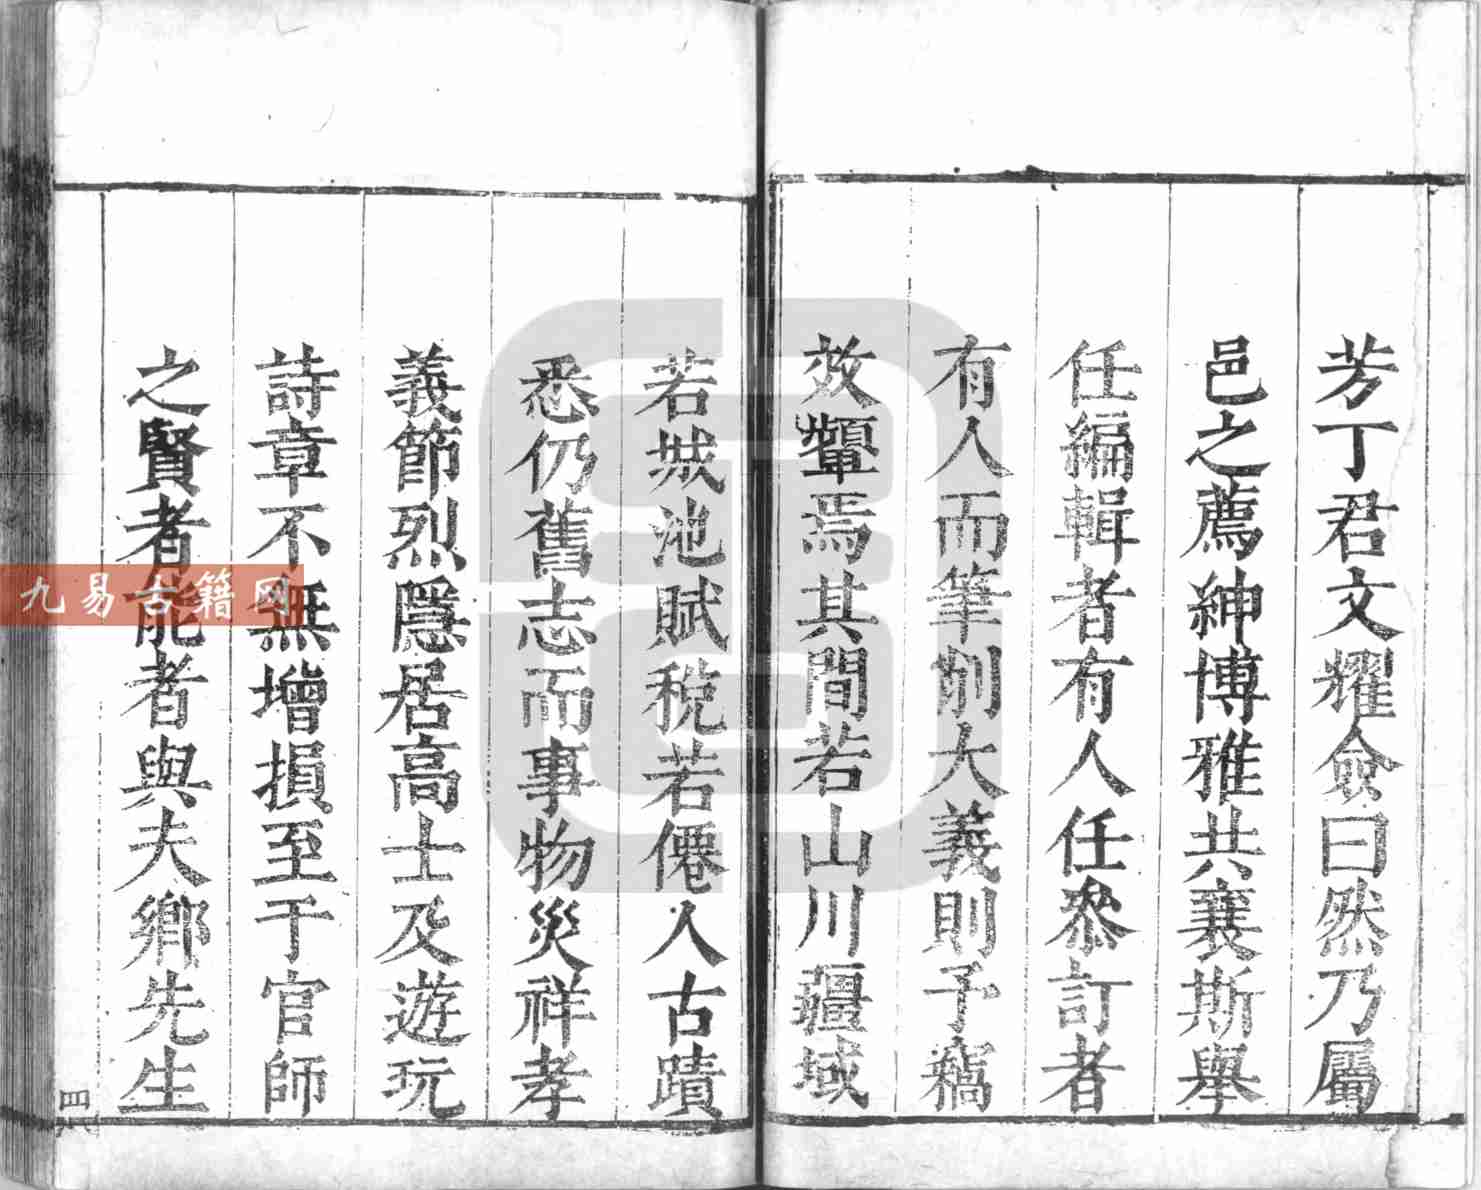 芳丁君文耀僉曰然乃屬
邑之薦紳博雅共襄斯舉
任編輯者有人任叅訂者
有人而筆削大義則予竊
效顰焉其間若山川疆域
若城池賦稅若僊人古蹟
悉仍舊志而事物災祥孝
義節烈隱居高士及遊玩
詩章不無增損至于官師
之賢者能者與夫鄉先生
四
九易古籍网